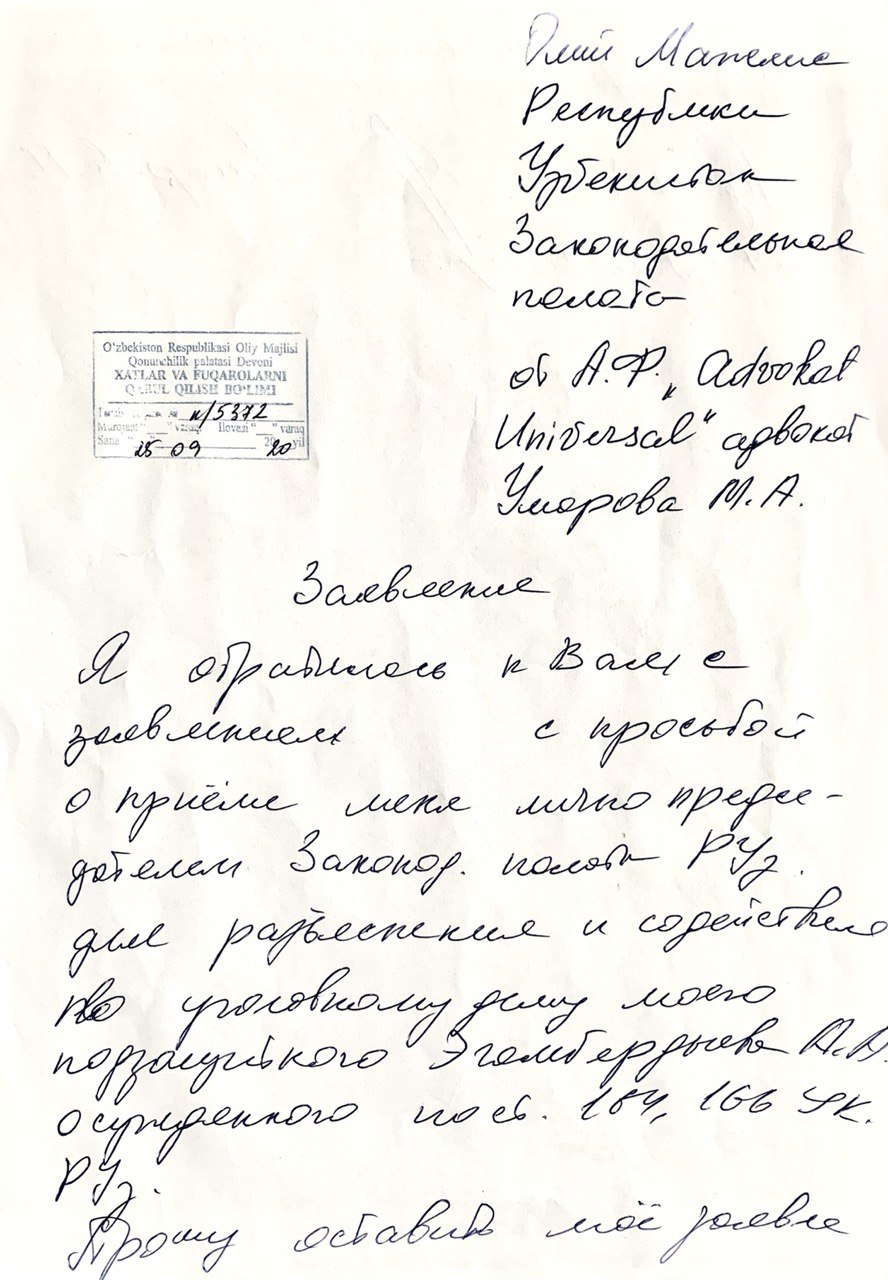 Олий Мажлис
Республики
Узбекистан
Законодательная
палата
от А.Ф. „Advokat
Universal" адвокат
Умарова М.А.
O'zbekiston Respublikasi Oliy Majlisi
Qonunchilik palatasi Devoni
XATLAR VA FUQAROLARNI
QABUL QILISH BO'LIMI
к/5372
Murojaat "__" varaq. Ilovasi "__" varaq
Sana "25" 09 2020 yil
Заявление
Я обратилась к Вам с
заявлением с просьбой
о приёме меня лично предсе-
дателем Законод. палаты РУз.
для разъяснения и содействия
по уголовному делу моего
подзащитного Эгамбердыева А.А.
осужденного по ст. 184, 166 УК.
РУз.
Прошу оставить моё заявле